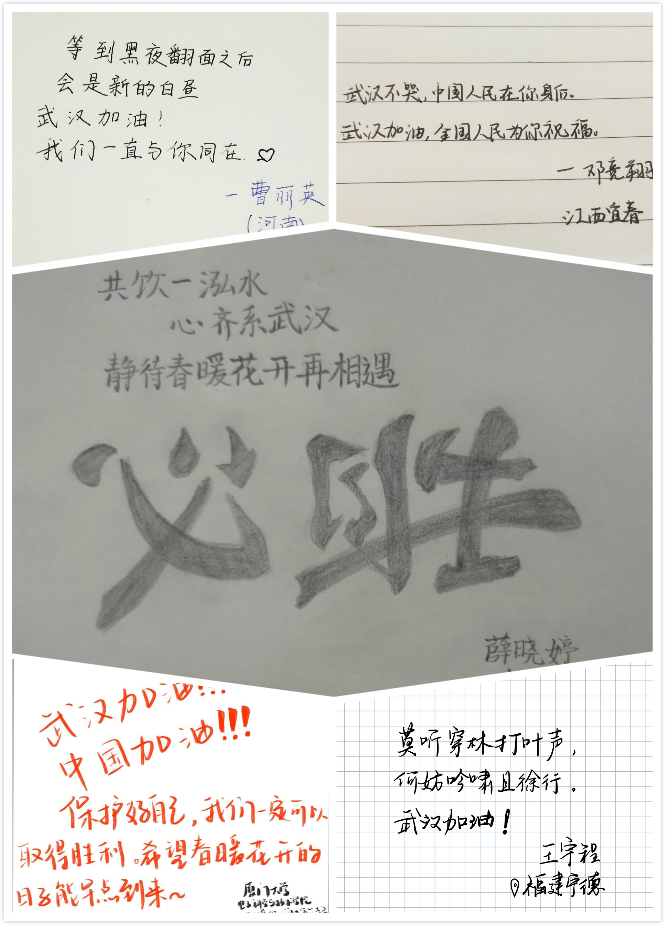 等到黑夜翻面之后
会是新的白昼
武汉加油!
我们一直与你同在.♡
一曹丽英
(河南)
武汉不哭,中国人民在你身后。
武汉加油,全国人民为你祝福。
一邓亮翔
江西宜春
共饮一泓水
心齐系武汉
静待春暖花开再相遇
必胜
薛晓婷
武汉加油!!!
中国加油!!!
保护好自己,我们一定可以
取得胜利。希望春暖花开的
日子能早点到来~
厦门大学
莫听穿林打叶声,
何妨吟啸且徐行.
武汉加油!
王宇程
福建宁德